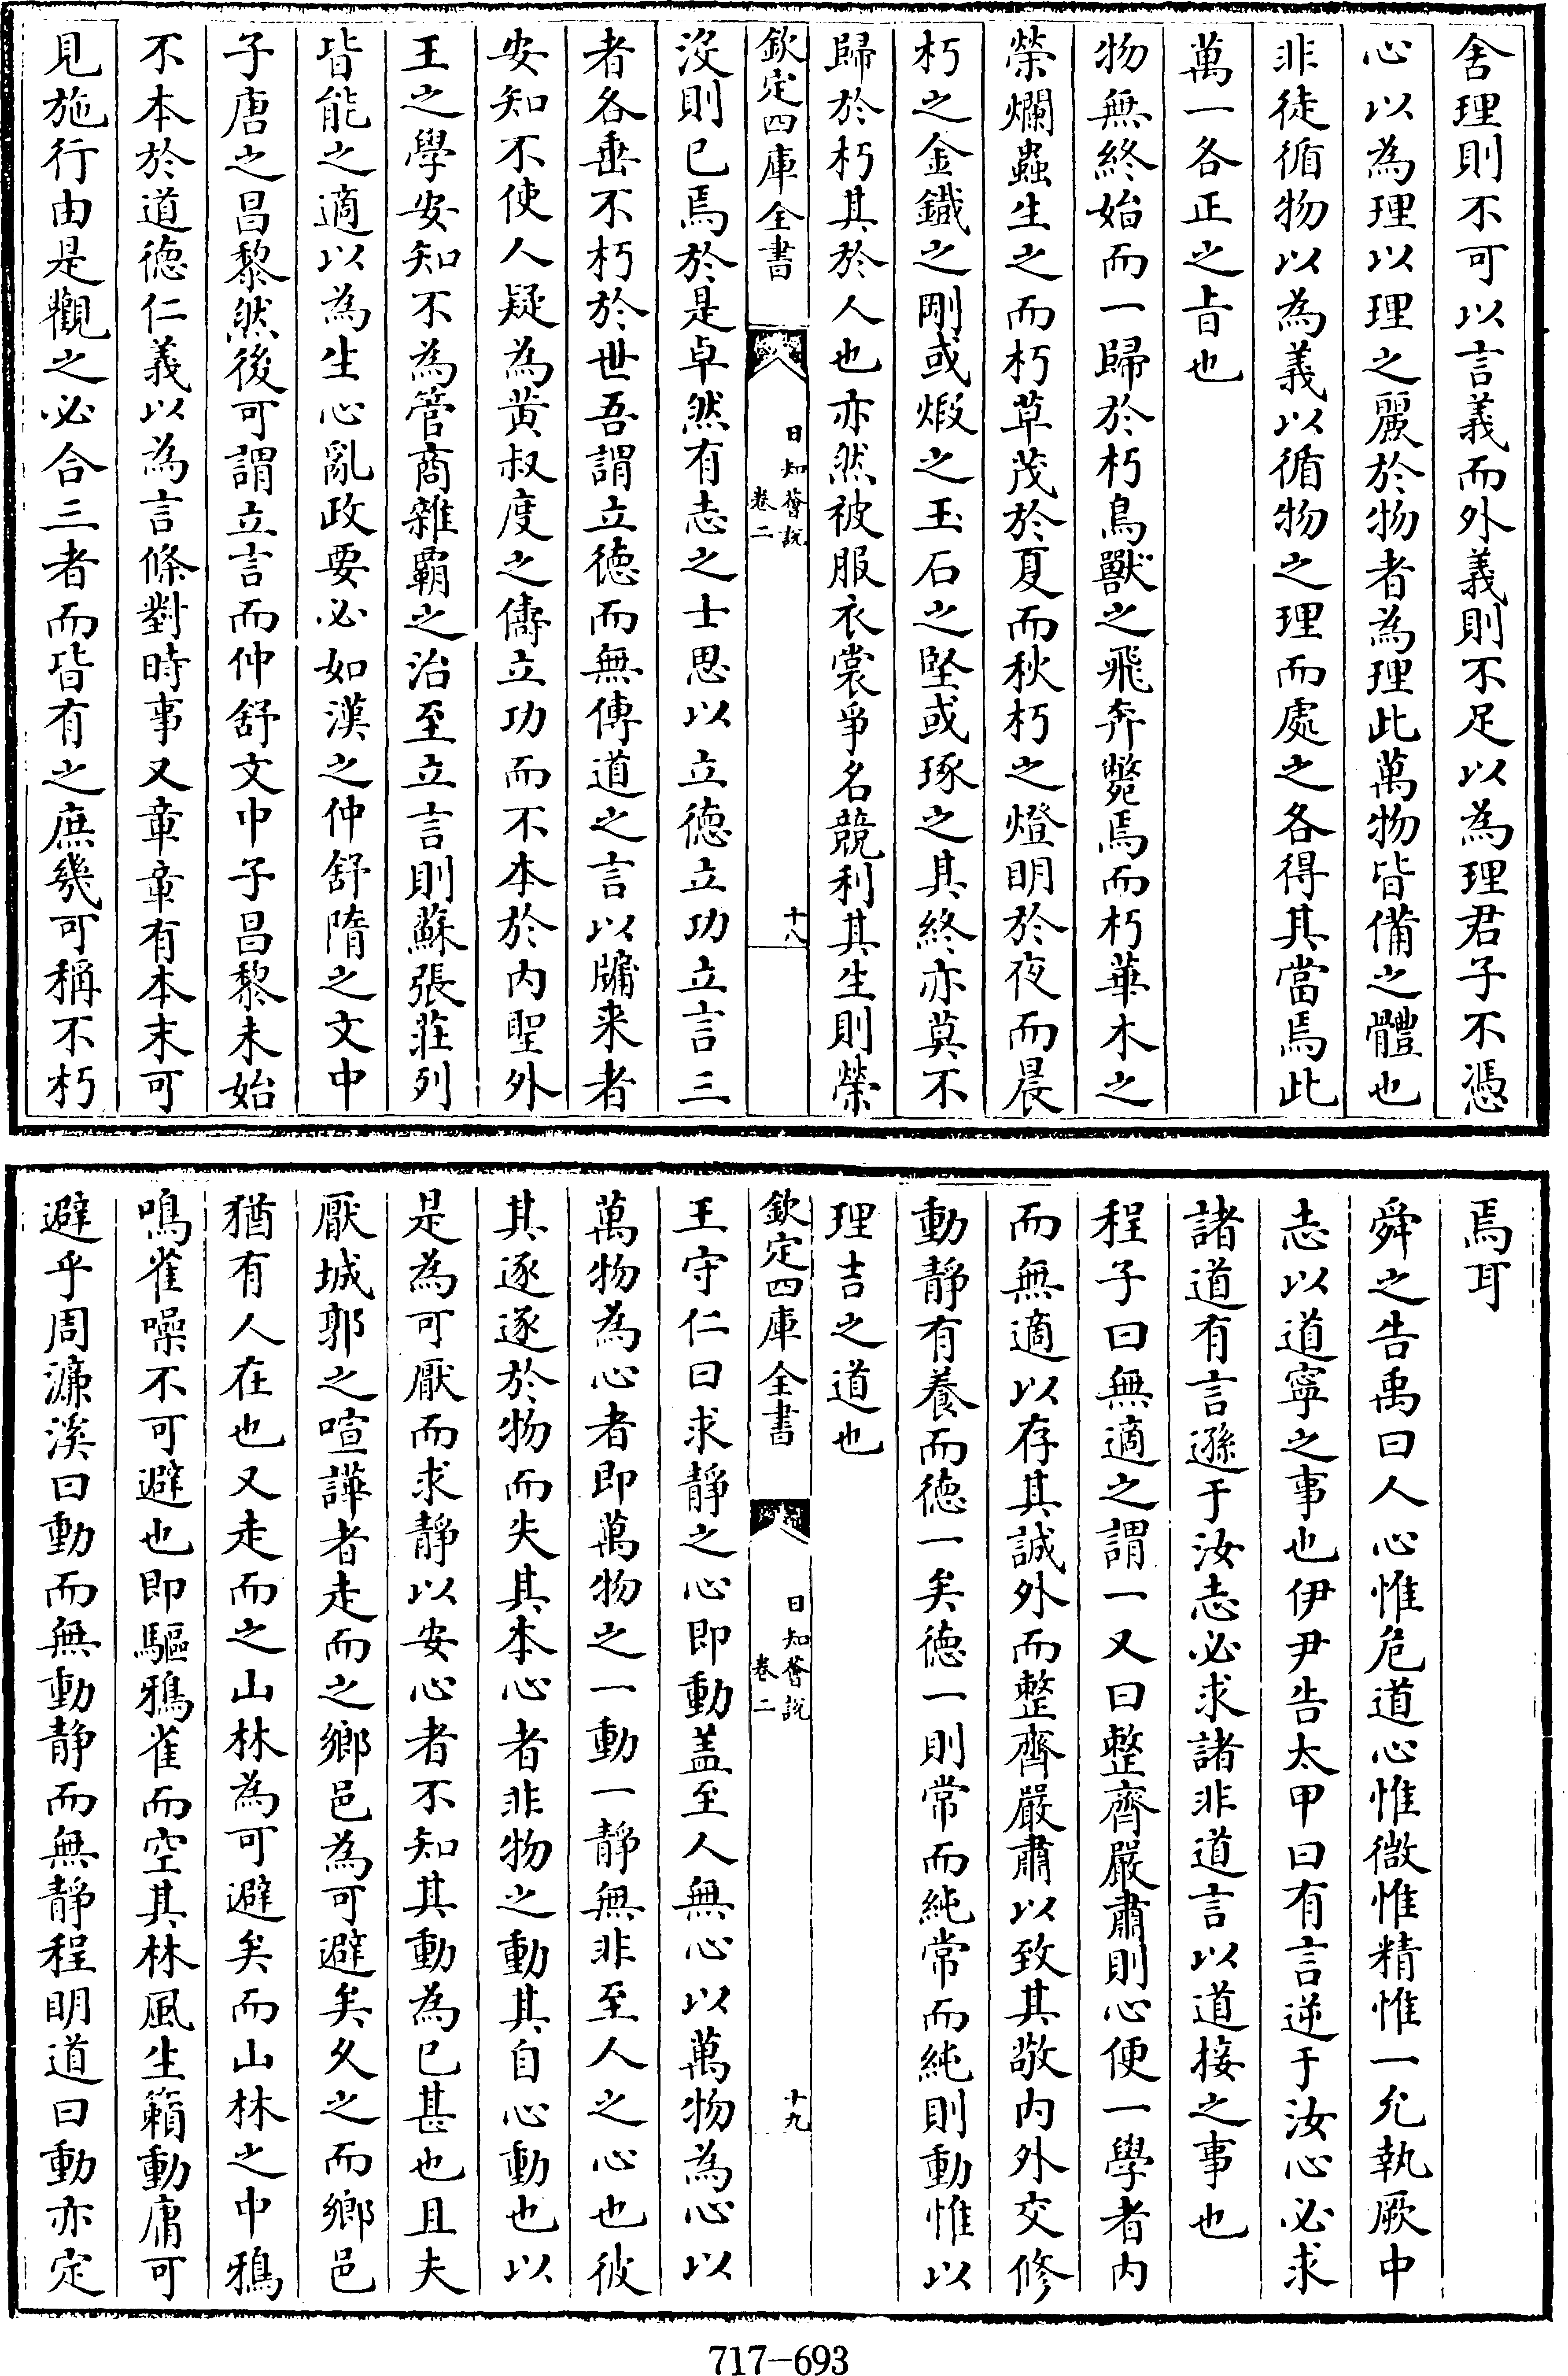 舍理則不可以言義而外義則不足以為理君子不憑
心以為理以理之麗於物者為理此萬物皆備之體也
非徒循物以為義以循物之理而處之各得其當焉此
萬一各正之㫖也
物無終始而一歸於朽鳥獸之飛奔斃焉而朽華木之
榮爛蟲生之而朽草茂於夏而秋朽之燈明於夜而晨
朽之金鐵之剛或煅之玉石之堅或琢之其終亦莫不
歸於朽其於人也亦然被服衣裳爭名競利其生則榮
欽定四庫全書
日知薈說
卷二
十八
沒則已焉於是卓然有志之士思以立徳立功立言三
者各垂不朽於世吾謂立徳而無傳道之言以牖来者
安知不使人疑為黄叔度之儔立功而不本於内聖外
王之學安知不為管商雜霸之治至立言則蘇張莊列
皆能之適以為生心亂政要必如漢之仲舒隋之文中
子唐之昌黎然後可謂立言而仲舒文中子昌黎未始
不本於道徳仁義以為言條對時事又章章有本末可
見施行由是觀之必合三者而皆有之庶幾可稱不朽
焉耳
舜之告禹曰人心惟危道心惟微惟精惟一允執厥中
志以道寧之事也伊尹告太甲曰有言逆于汝心必求
諸道有言遜于汝志必求諸非道言以道接之事也
程子曰無適之謂一又曰整齊嚴肅則心便一學者内
而無適以存其誠外而整齊嚴肅以致其敬内外交修
動靜有養而徳一矣徳一則常而純常而純則動惟以
理吉之道也
欽定四庫全書
日知薈說
卷二
十九
王守仁曰求靜之心即動盖至人無心以萬物為心以
萬物為心者即萬物之一動一靜無非至人之心也彼
其逐逐於物而失其本心者非物之動其自心動也以
是為可厭而求靜以安心者不知其動為已甚也且夫
厭城郭之喧譁者走而之鄉邑為可避矣久之而鄉邑
猶有人在也又走而之山林為可避矣而山林之中鴉
鳴雀噪不可避也即驅鴉雀而空其林風生籟動庸可
避乎周濂溪曰動而無動靜而無靜程明道曰動亦定
717-693